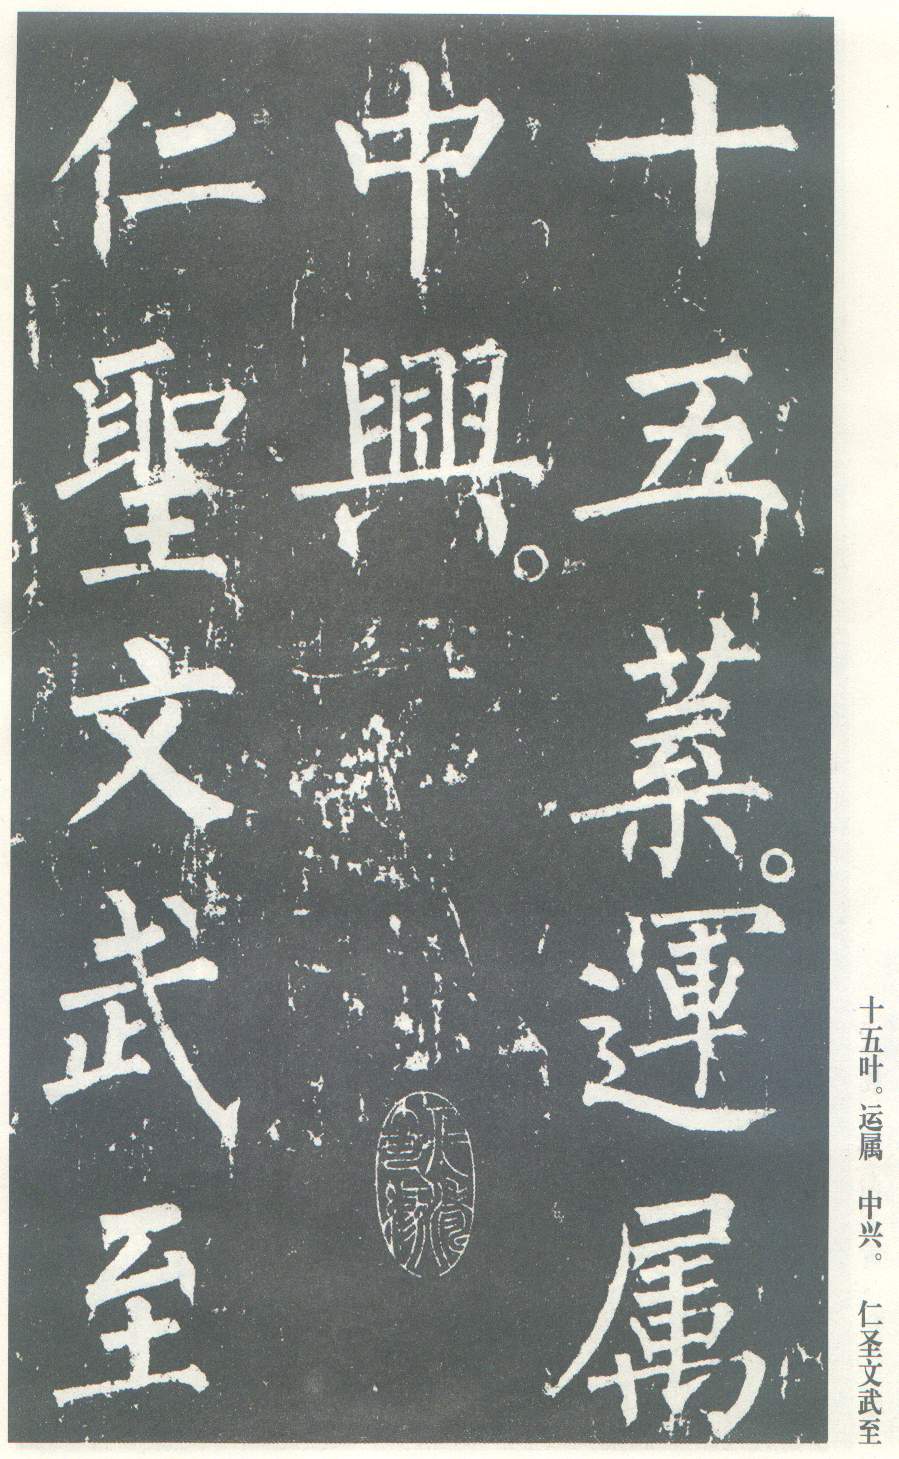 十五葉。運属
中興。
仁聖文武至
十五叶。运属　中兴。　仁圣文武至